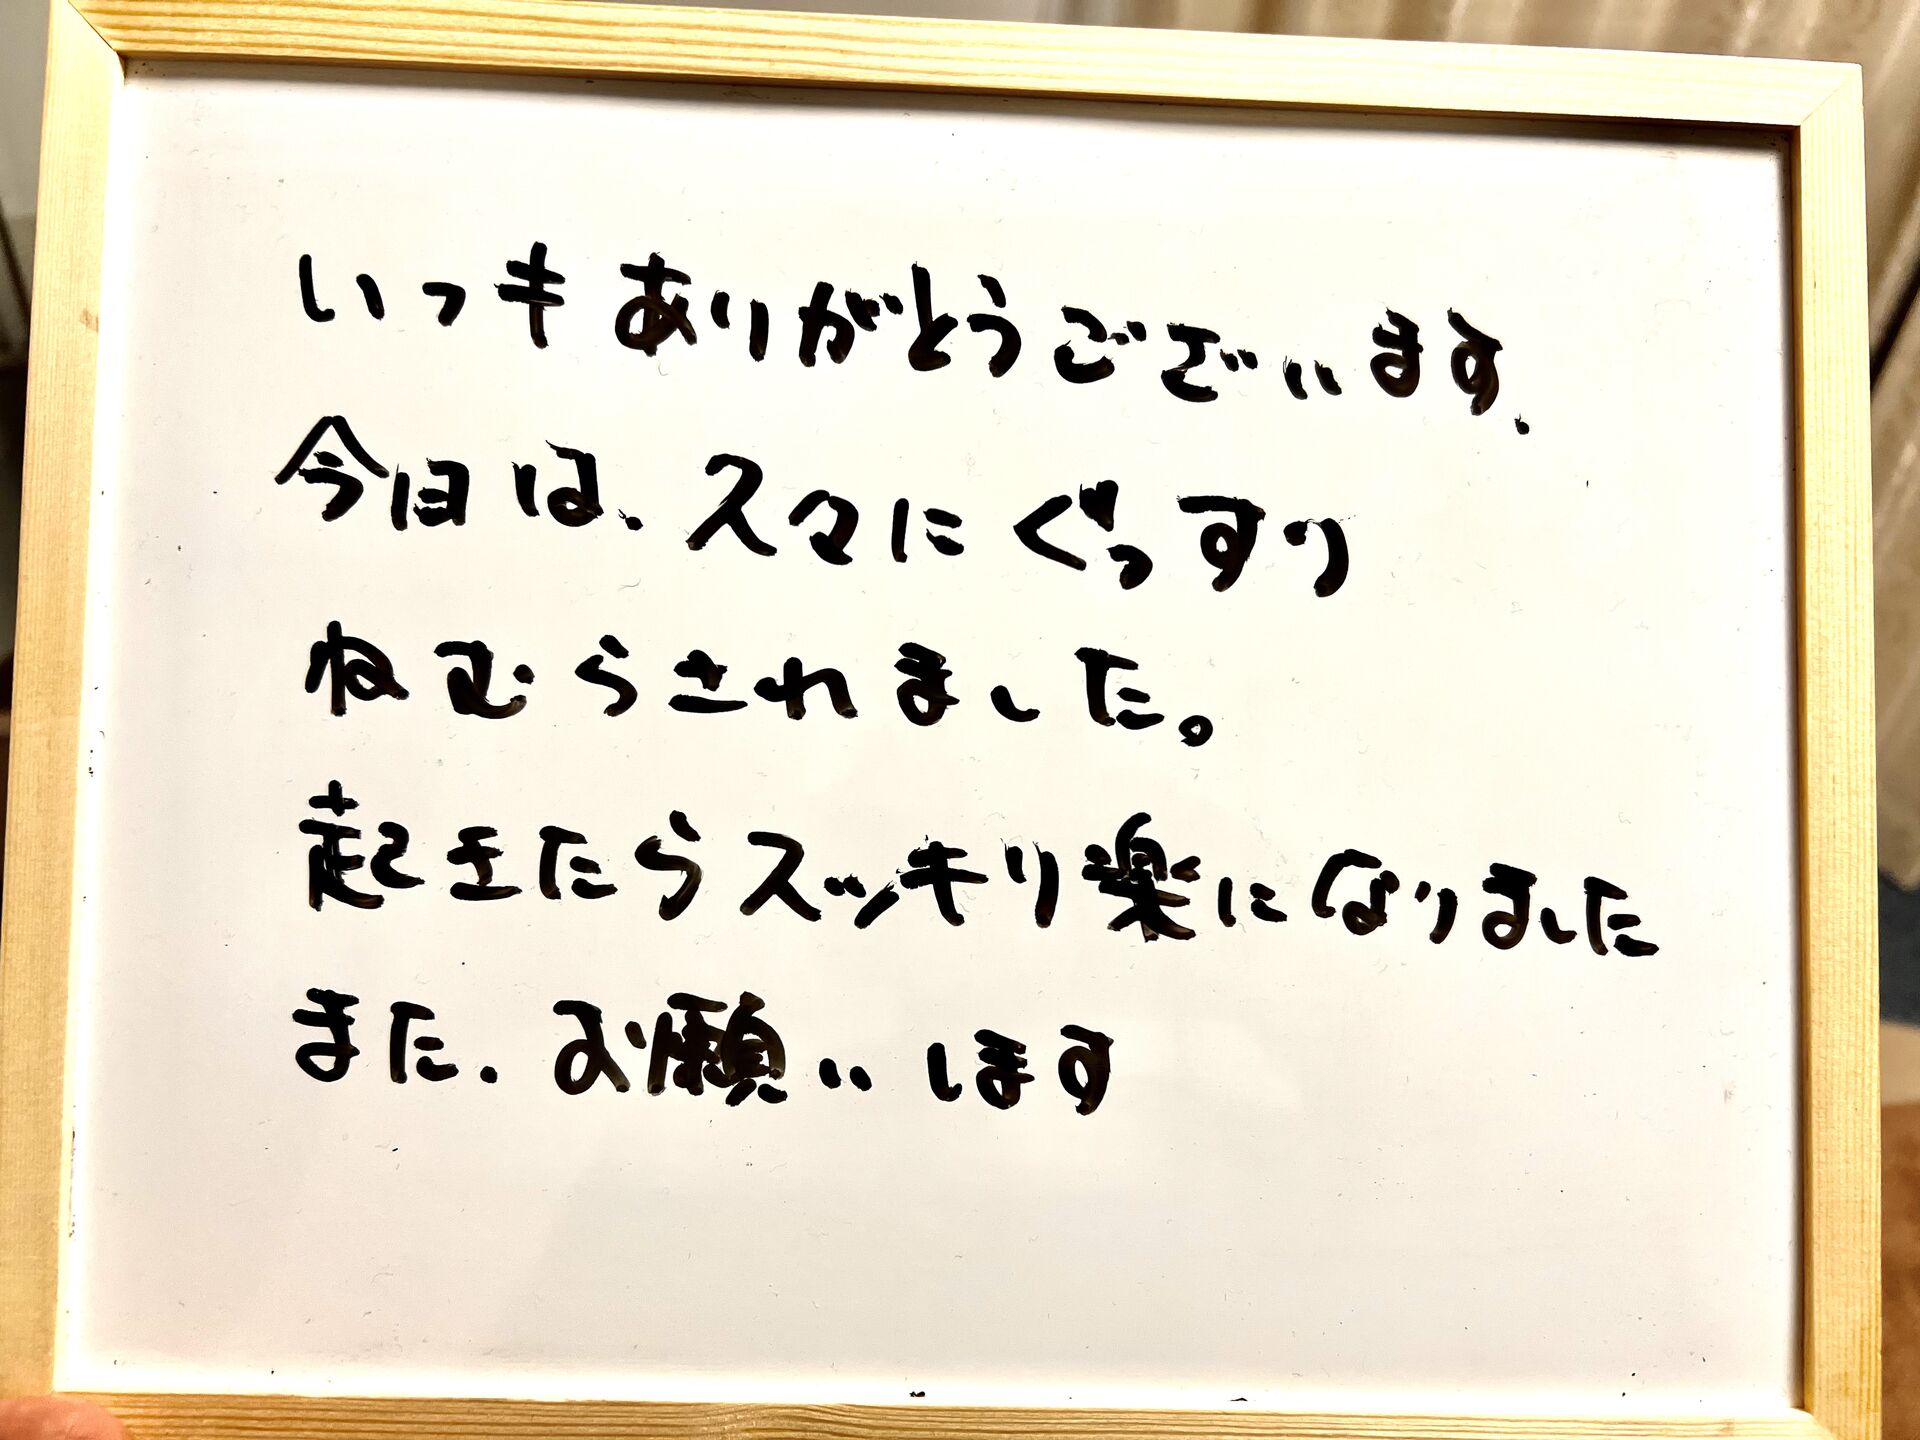 いつもありがとうございます.
今日は、久々にぐっすり
ねむらされました。
起きたらスッキリ楽になりました
また、お願いします